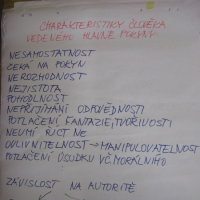 CHARAKTERISTIKY ČLOVĚKA
VEDENÉHO HLAVNĚ POKYNY
NESAMOSTATNOST
ČEKÁ NA POKYN
NEROZHODNOST
NEJISTOTA
POHODLNOST
NEPŘIJÍMÁNÍ ODPOVĚDNOSTI
POTLAČENÍ FANTAZIE, TVOŘIVOSTI
NEUMÍ ŘÍCT NE
OVLIVNITELNOST → MANIPULOVATELNOST
POTLAČENÍ ÚSUDKU VČ. MORÁLNÍHO
ZÁVISLOST NA AUTORITĚ